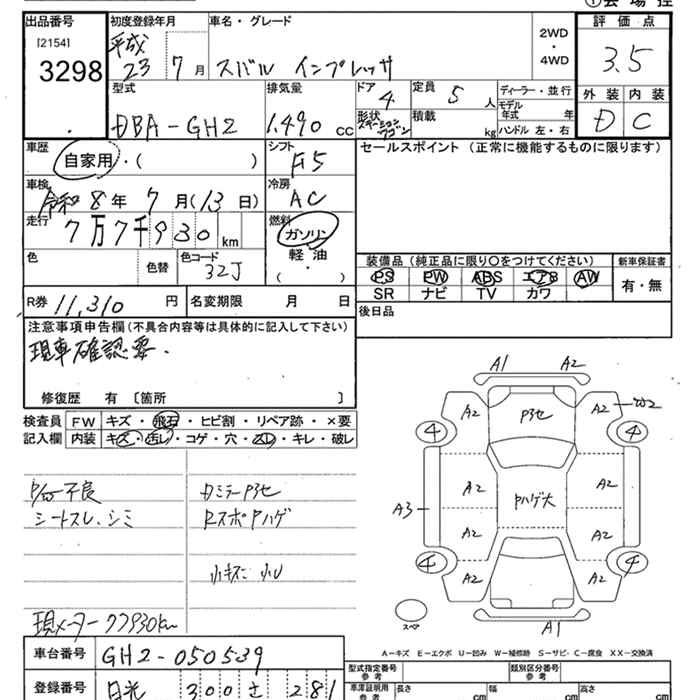 ①会場控
出品番号
[2154]
3298
初度登録年月
平成
23 7月
車名・グレード
スバル インプレッサ
2WD
・
4WD
評価点
3.5
外装 内装
D C
型式
DBA-GH2
排気量
1,490 cc
ドア
4
形状
ステーションワゴン
定員
5 人
積載
kg
ディーラー・並行
モデル年式 年
ハンドル 左・右
車歴
自家用・( )
シフト
F5
セールスポイント (正常に機能するものに限ります)
車検
令和 8年 7月(13日)
冷房
AC
走行
7万7千930km
燃料
ガソリン
・
軽油
・
( )
色
色替
色コード
32J
装備品 (純正品に限り○をつけてください)
新車保証書
PS PW ABS エアB AW
SR ナビ TV カワ
有・無
R券 11,310 円
名変期限 月 日
後日品
注意事項申告欄(不具合内容等は具体的に記入して下さい)
現車確認要.
修復歴 有 〔箇所 〕
検査員
記入欄
FW キズ・飛石・ヒビ割・リペア跡・×要
内装 キズ・汚レ・コゲ・穴・スレ・キレ・破レ
不良
シートスレ、シミ
DミラーP3セ
RスポPハゲ
小キズ 小U
現メーター 77930km
A1 A2
A2 P3セ A2 W2
4 4
A2 A2
A3 Pハゲ大
A2 A2
4 4
A2 A2
スペア
A1
A-キズ E-エクボ U-凹み W-補修跡 S-サビ C-腐食 XX-交換済
車台番号 GH2-050539
登録番号 300 さ 281
型式指定番号
参考
類別区分番号
参考
車庫証明用
参考
長さ cm
幅 cm
高さ cm